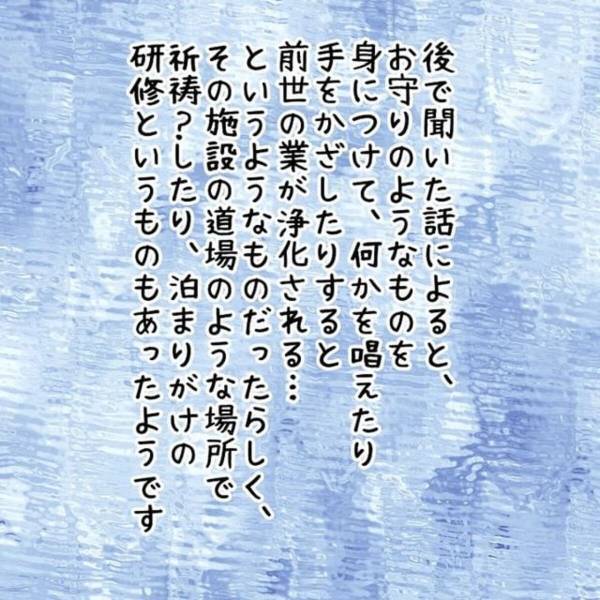 後で聞いた話によると、
お守りのようなものを
身につけて、何かを唱えたり
手をかざしたりすると
前世の業が浄化される…
というようなものだったらしく、
その施設の道場のような場所で
祈祷？したり、泊まりがけの
研修というものもあったようです